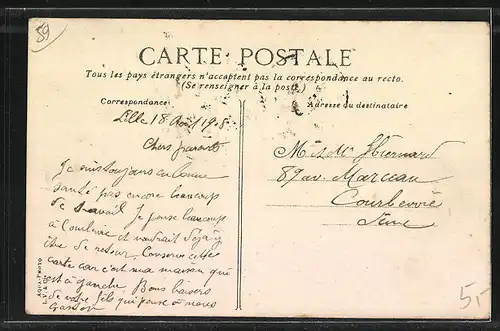 59
CARTE POSTALE
Tous les pays étrangers n'acceptent pas la correspondance au recto.
(Se renseigner à la poste.)
Correspondance
Adresse du destinataire
Lille 18 Août 1908
Chers parents
Je suis toujours en bonne
santé pas encore beaucoup
de travail Je pense beaucoup
à Courbevoie et voudrait déjà y
être de retour. Conserve cette
carte car c'est ma maison qui
est à gauche Bons baisers
de votre fils qui pense à vous
Gaston
M & Me
89 av. Marceau
Courbevoie
Seine
AQUA-PHOTO
5,-